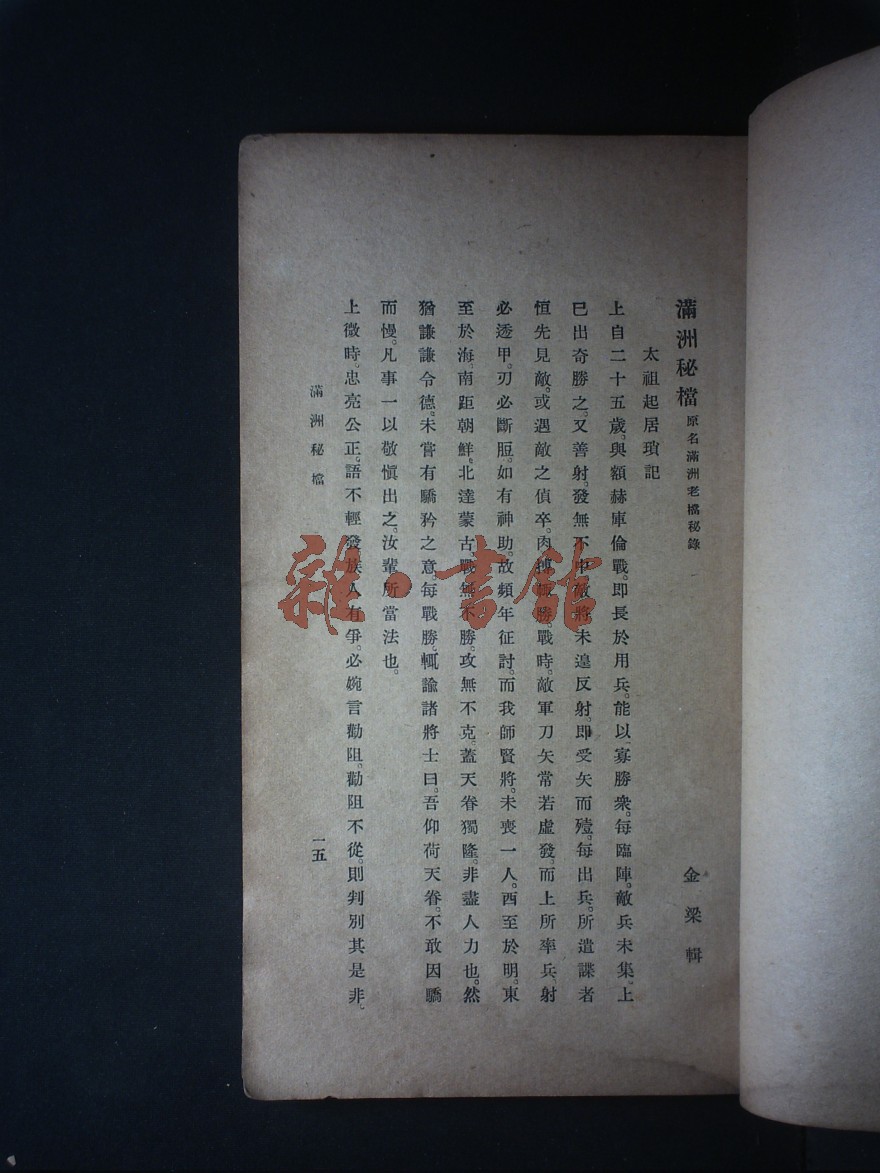 滿洲秘檔 原名滿洲老檔秘錄 金梁輯
太祖起居瑣記
上自二十五歲。與額赫庫倫戰。即長於用兵。能以寡勝衆。每臨陣。敵兵未集。上
已出奇勝之。又善射。發無不中。敵將未遑反射。即受矢而殪。每出兵。所遣諜者
恒先見敵。或遇敵之偵卒。肉搏輒勝。戰時。敵軍刀矢常若虛發。而上所率兵。射
必透甲。刃必斷脰。如有神助。故頻年征討。而我師賢將。未喪一人。西至於明。東
至於海。南距朝鮮。北達蒙古。戰無不勝。攻無不克。蓋天眷獨隆。非盡人力也。然
猶謙謙令德。未嘗有驕矜之意。每戰勝。輒諭諸將士曰。吾仰荷天眷。不敢因驕
而慢。凡事一以敬愼出之。汝輩所當法也。
上微時。忠亮公正。語不輕發。族人有爭。必婉言勸阻。勸阻不從。則判別其是非。
滿洲秘檔
一五
雜·書館